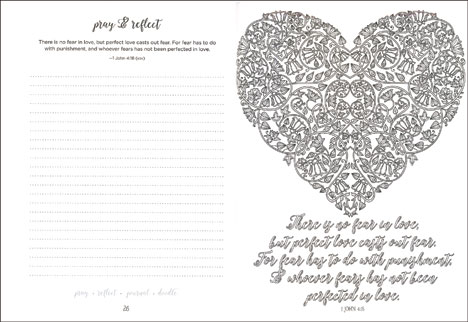 pray & reflect
There is no fear in love, but perfect love casts out fear. For fear has to do
with punishment, and whoever fears has not been perfected in love.
pray • reflect • journal • doodle
28
There is no fear in love,
but perfect love casts out fear.
For fear has to do with punishment,
& whoever fears has not been
perfected in love.
1 JOHN 4:18